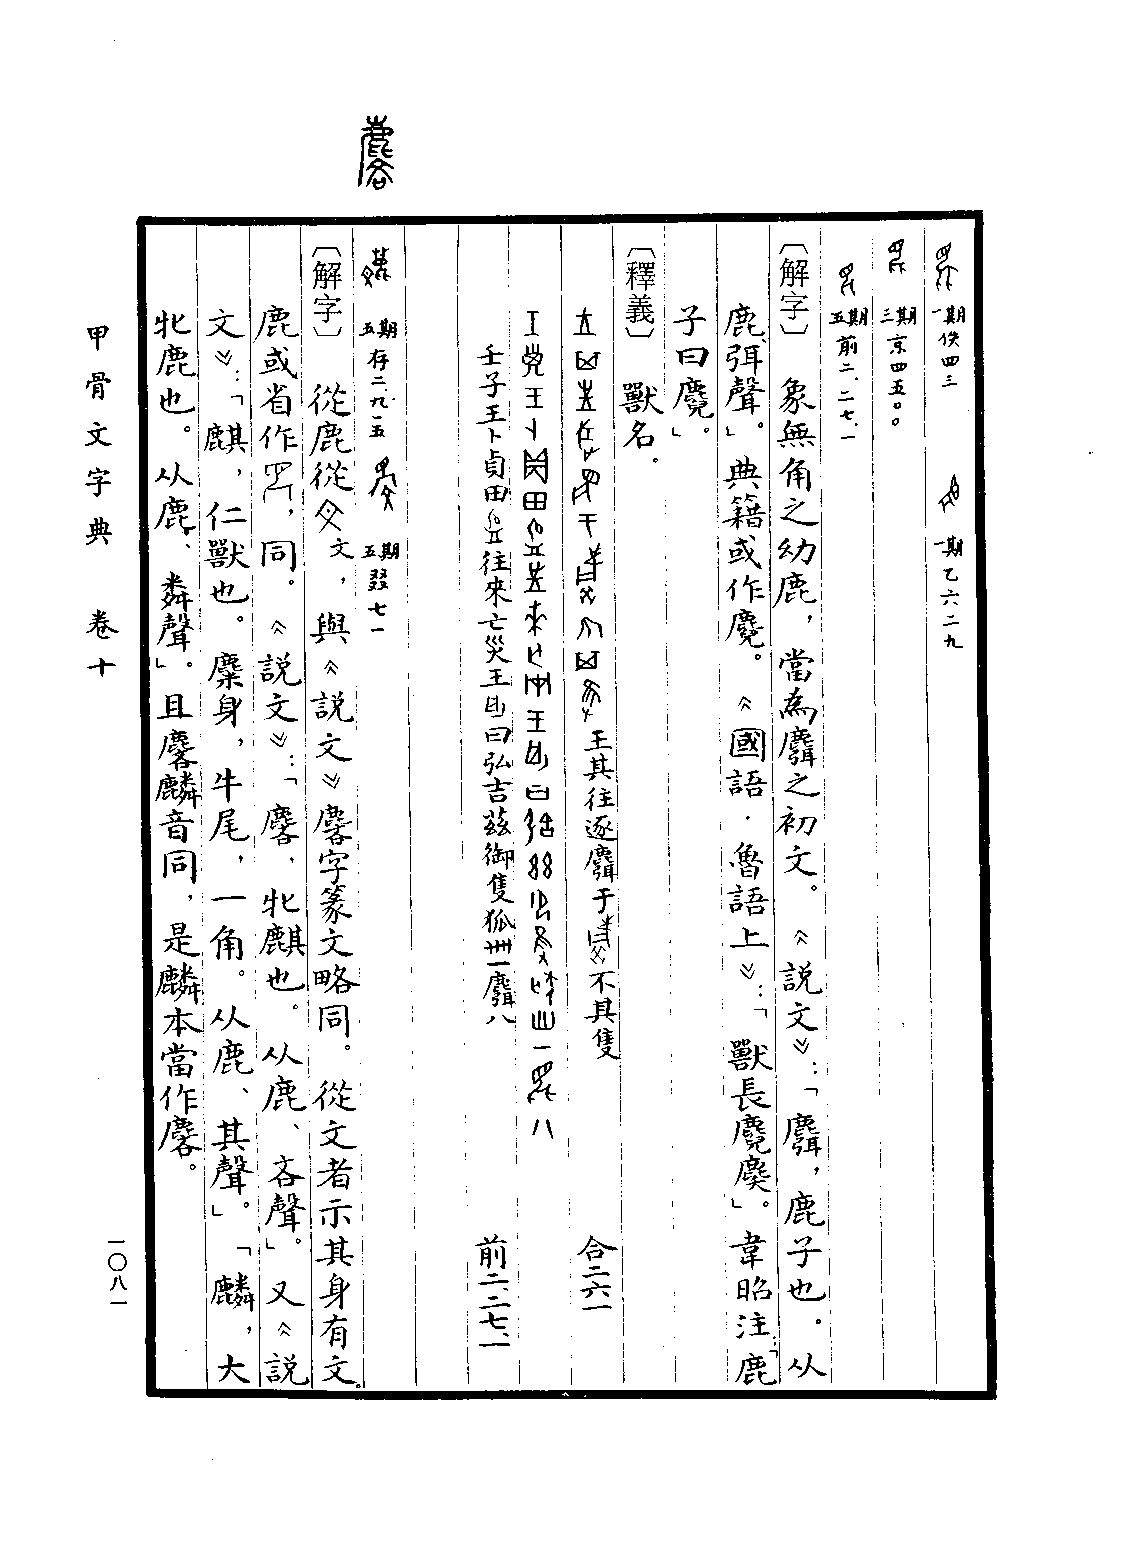 一期 佚四三　一期 乙六二九
三期 京四五〇〇
五期 前二．二七．一
〔解字〕象無角之幼鹿，當為麛之初文。《說文》：「麛，鹿子也。从
鹿，弭聲」。典籍或作麑。《國語．魯語上》：「獸長麑䴠」。韋昭注：「鹿
子曰麑」。
〔釋義〕獸名。
王其往逐麛于不其隻　合二六一
壬子王卜貞田往來亡災王曰弘吉茲御隻狐卌一麛八　前二．二七．一
五期 存二．九一五　五期 掇七一
〔解字〕從鹿從文，與《說文》麐字篆文略同。從文者示其身有文。
鹿或省作，同。《說文》：「麐，牝麒也。从鹿、吝聲」。又《說
文》：「麒，仁獸也。麋身，牛尾，一角。从鹿、其聲。」「麟，大
牝鹿也。从鹿、粦聲」。且麐麟音同，是麟本當作麐。
甲骨文字典 卷十
一〇八一